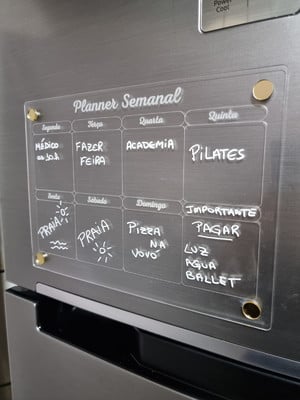 Power
Cool
Planner Semanal
Segunda
Terça
Quarta
Quinta
MÉDICO
FAZER
FEIRA
ACADEMIA
PILATES
Sexta
Sábado
Domingo
IMPORTANTE
PRAIA
PRAIA
PIZZA
NA
VOVÓ
PAGAR
LUZ
AGUA
BALLET